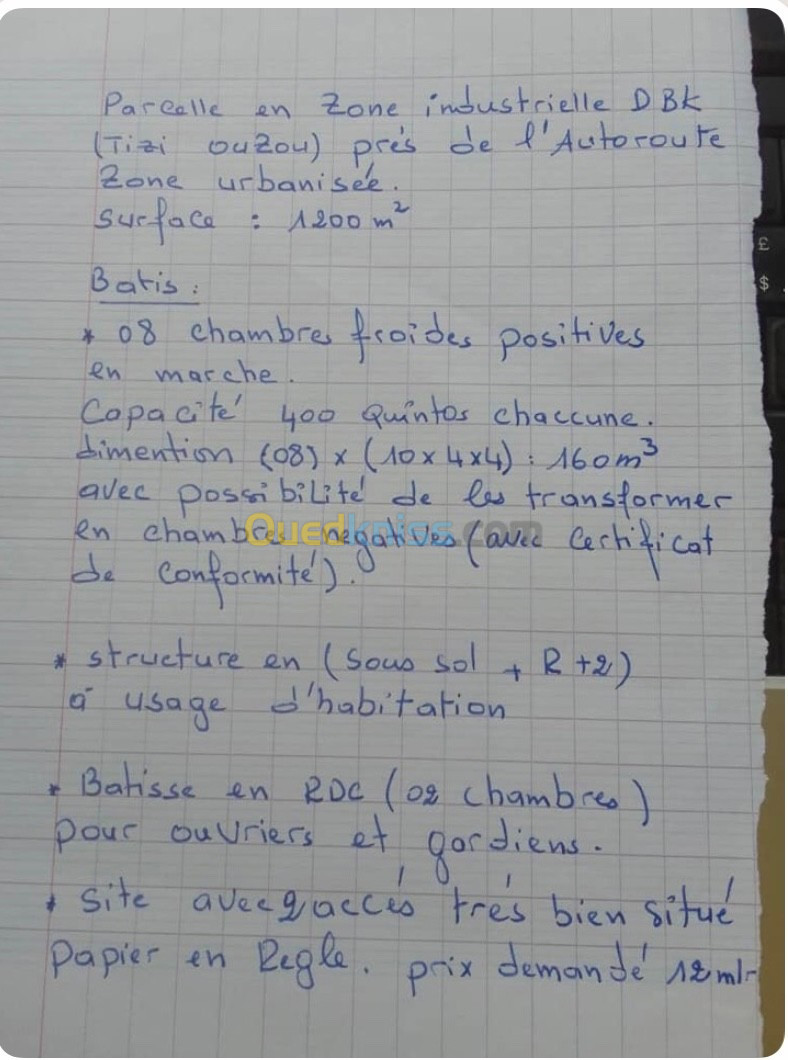 Parcelle en Zone industrielle DBK
(Tizi ouzou) près de l'Autoroute
Zone urbanisée.
Surface : 1200 m²
Batis :
* 08 chambres froides positives
en marche.
Capacité 400 Quintos chaccune.
dimention (08) x (10x4x4) : 160m³
avec possibilité de les transformer
en chambres negatives (avec Certificat
de conformité).
Ouedkniss.com
* structure en (Sous sol + R+2)
à usage d'habitation
* Batisse en RDC (02 chambres)
pour ouvriers et gordiens.
* Site avec 2 accés trés bien situé
Papier en Regle. prix demandé 12 ml-
£
$